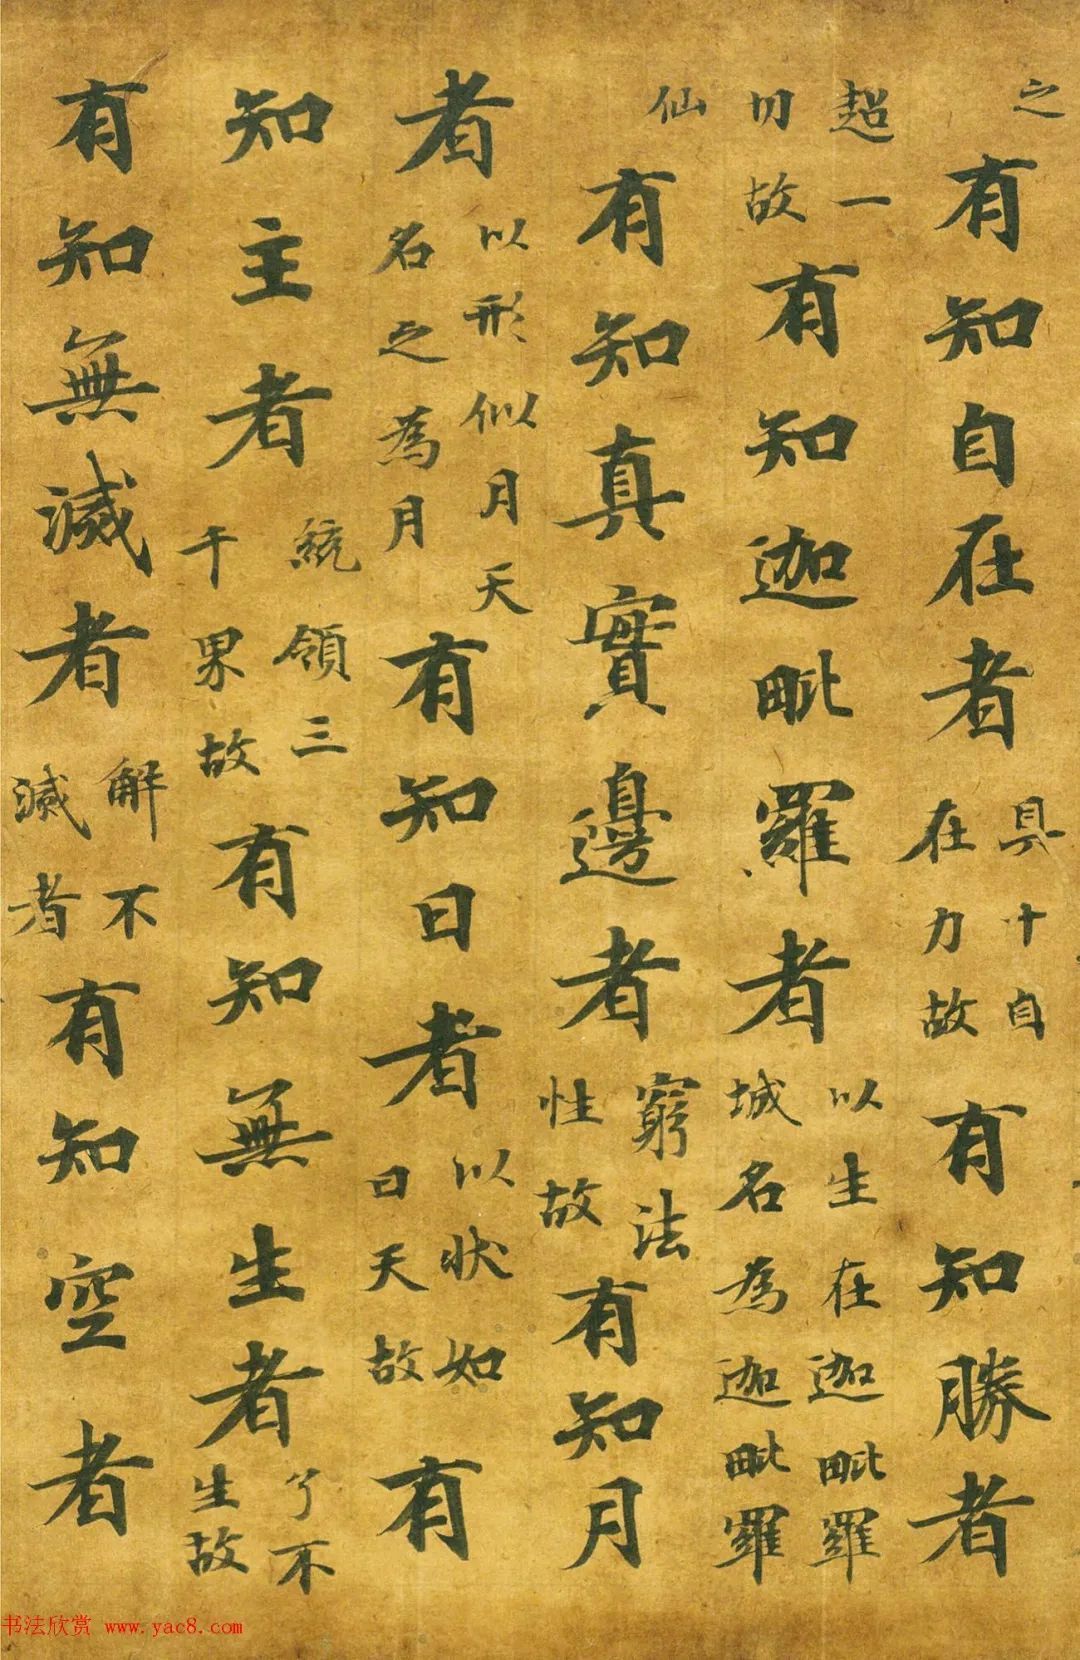 之有知自在者具十自在力故有知勝者
超一切故有知迦毗羅者以生在迦毗羅城名為迦毗羅
仙有知真實邊者窮法性故有知月
者以形似月天名之為月有知日者以状如日天故有
知主者統領三千界故有知無生者了不生故
有知無滅者解不滅者有知空者
书法欣赏 www.yac8.com